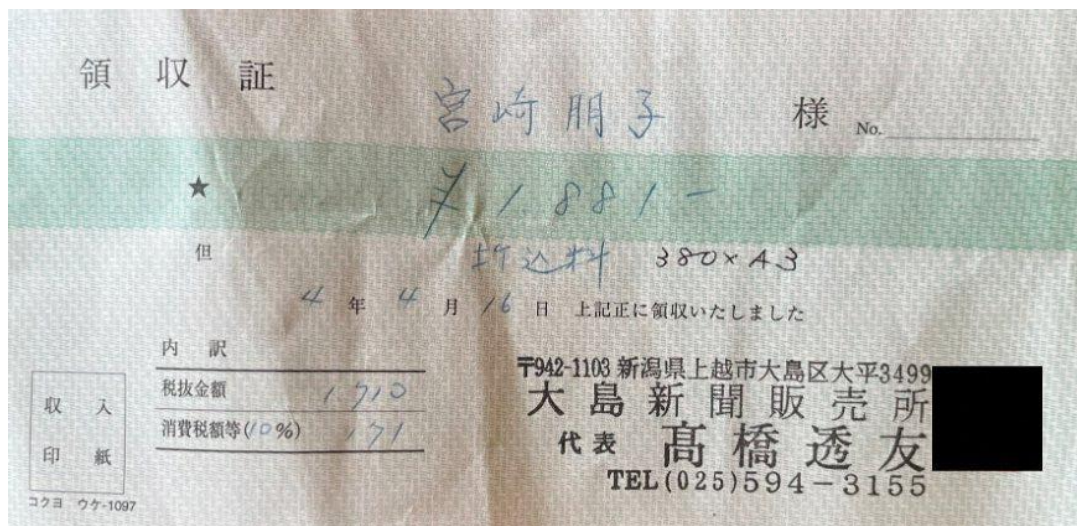 領収証
宮崎朋子 様 No.
★ ¥1.881-
但 折込料 380×A3
4年4月16日 上記正に領収いたしました
内訳
税抜金額 1,710
消費税額等(10%) 171
収入
印紙
コクヨ ウケ-1097
〒942-1103 新潟県上越市大島区大平3499
大島新聞販売所
代表 髙橋透友
TEL(025)594-3155